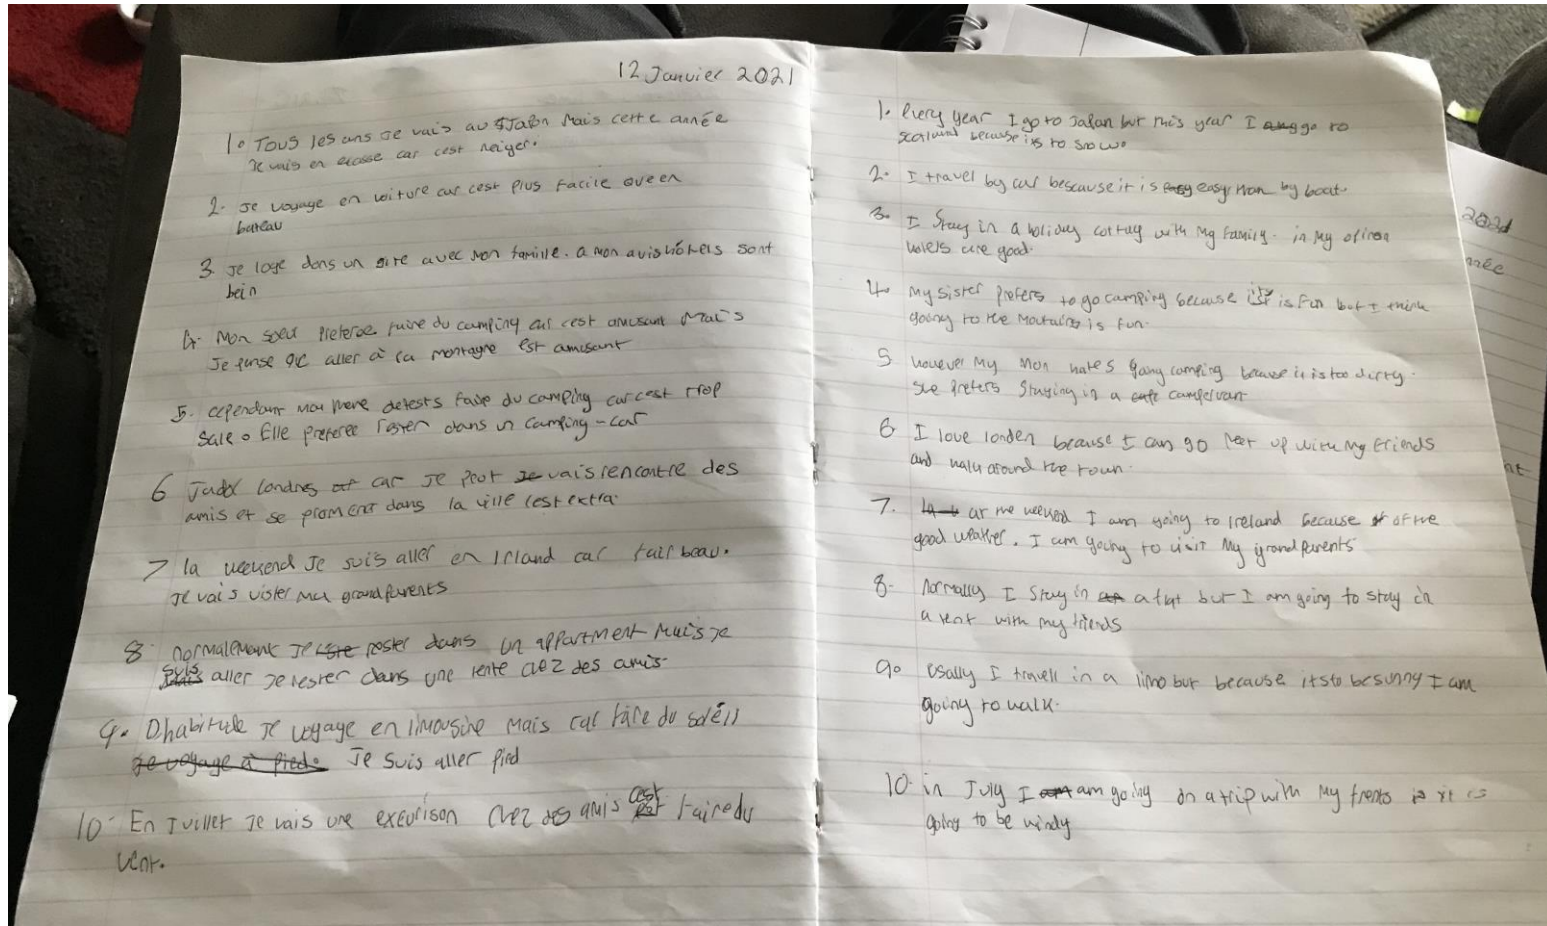 12 Janvier 2021
1. Tous les ans je vais au Japn mais cette année
Je vais en ecosse car cest neiger.
2. Je voyage en voiture car cest plus facile que en
bateau
3. Je loge dans un gite avec mon famille. a mon avis hotels sont
bein
4. Mon soeur preferee faire du camping car cest amusant mais
Je pense que aller à la montagne est amusant
5. cependant ma mere detests faire du camping car cest trop
sale. Elle preferee rester dans un camping-car
6 J'adore londres car Je peut vais rencontre des
amis et se promener dans la ville cest extra.
7 la weekend Je suis aller en Irland car fair beau.
Je vais vister ma grandparents
8. normalemant Je rester dans un appartment mais Je
suis aller Je rester dans une tente chez des amis.
9. Dhabitude Je voyage en limousine mais car faire du soleil
Je voyage à pied. Je suis aller pied
10. En Juillet Je vais une excurison chez des amis cest faire du
vent.
1. Every year I go to Japan but this year I go to
scotland because its to snow.
2. I travel by car bescause it is easy than by boat.
3. I Stay in a holiday cottag with my family. in my opinon
hotels are good.
4. My sister prefers to go camping because it is fun but I think
going to the moutains is fun.
5. however my mom hates camping because it is too dirty.
she prefers staying in a campervan
6 I love londen because I can go meet up with my friends
and walk around the town.
7. at the weekend I am going to Ireland because of the
good weather. I am going to visit my grandparents
8. normally I stay in a flat but I am going to stay in
a tent with my friends
9. Usally I travell in a limo but because itsto besunny I am
going to walk.
10. in July I am going on a trip with my frends it is
going to be windy
2021
née
nt